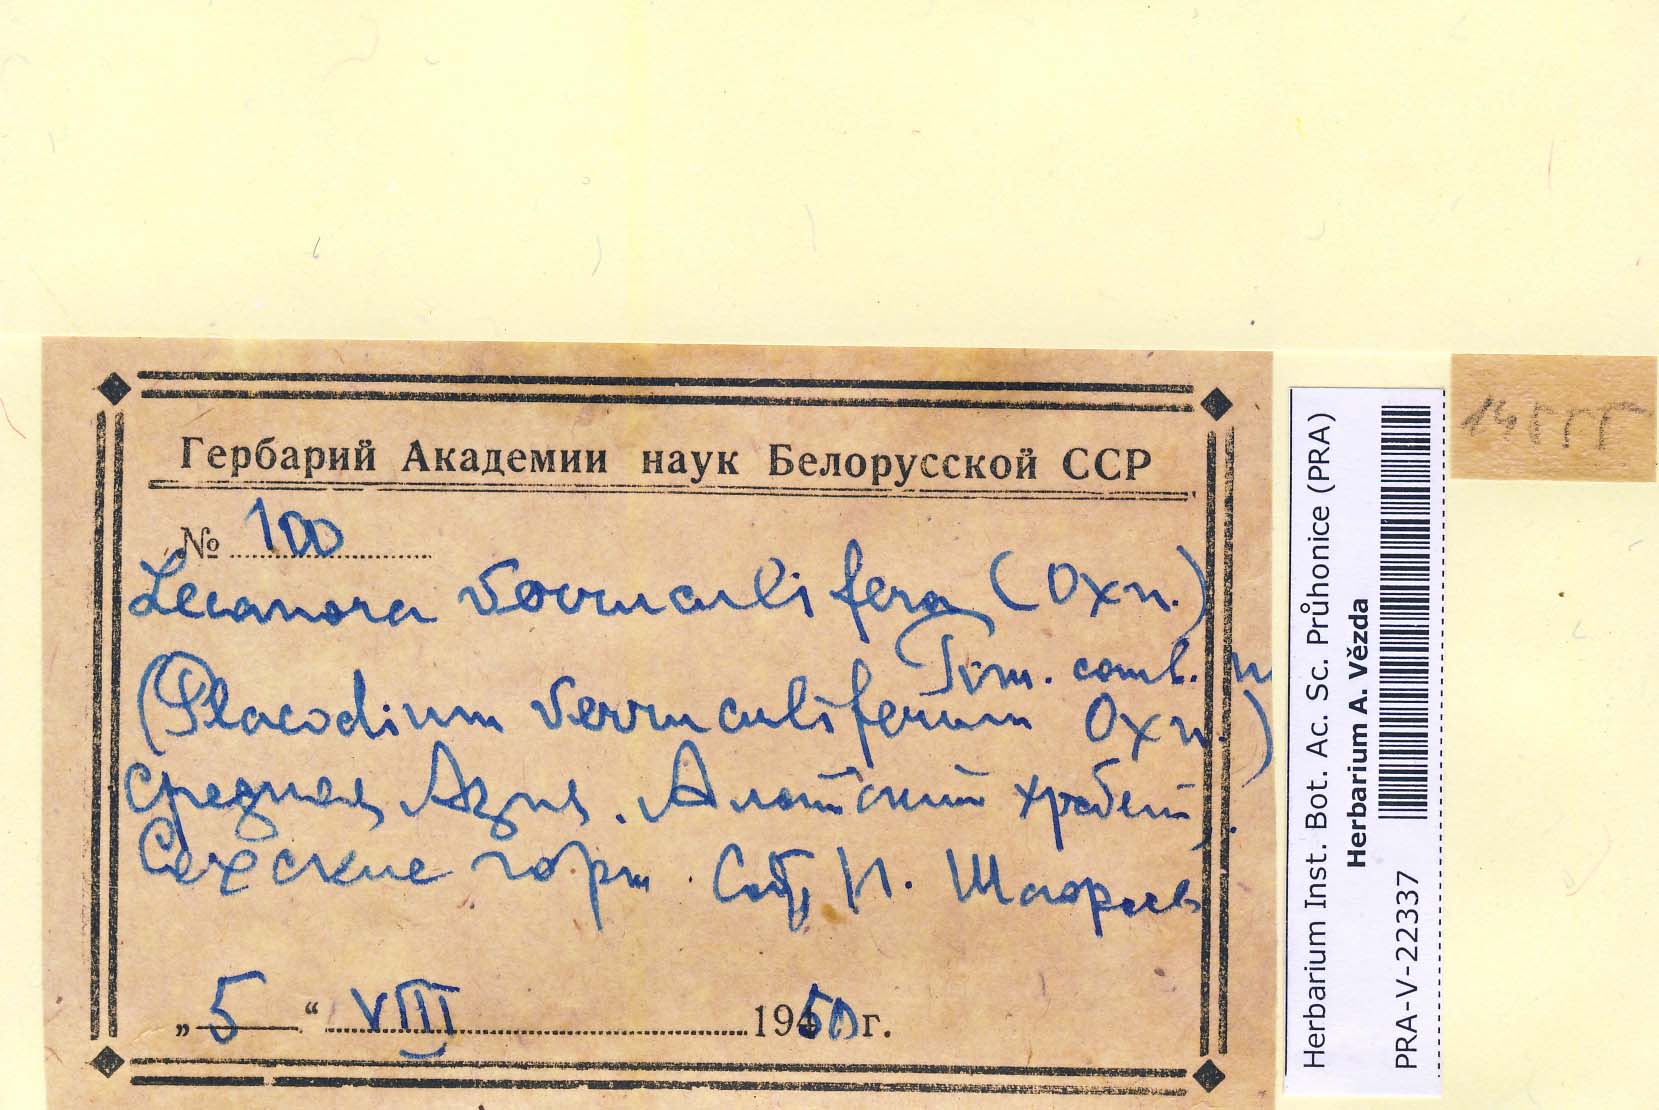 Гербарий Академии наук Белорусской ССР
№ 100
Lecanora verruculifera (Oxn.)
Tom. comb. n
(Placodium verruculiferum Oxn.)
Средняя Азия. Алайский хребет,
Сохские горы. Соб. Н.
„5“ VIII 1950 г.
Herbarium Inst. Bot. Ac. Sc. Průhonice (PRA)
Herbarium A. Vězda
PRA-V-22337